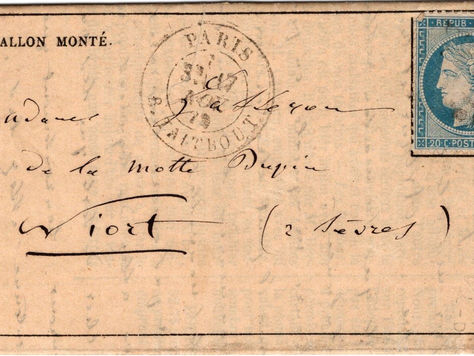 ALLON MONTÉ.
PARIS
R. TAITBOUT
REPUB
20 C. POST
de la Motte Dupin
Niort (2 Sèvres)